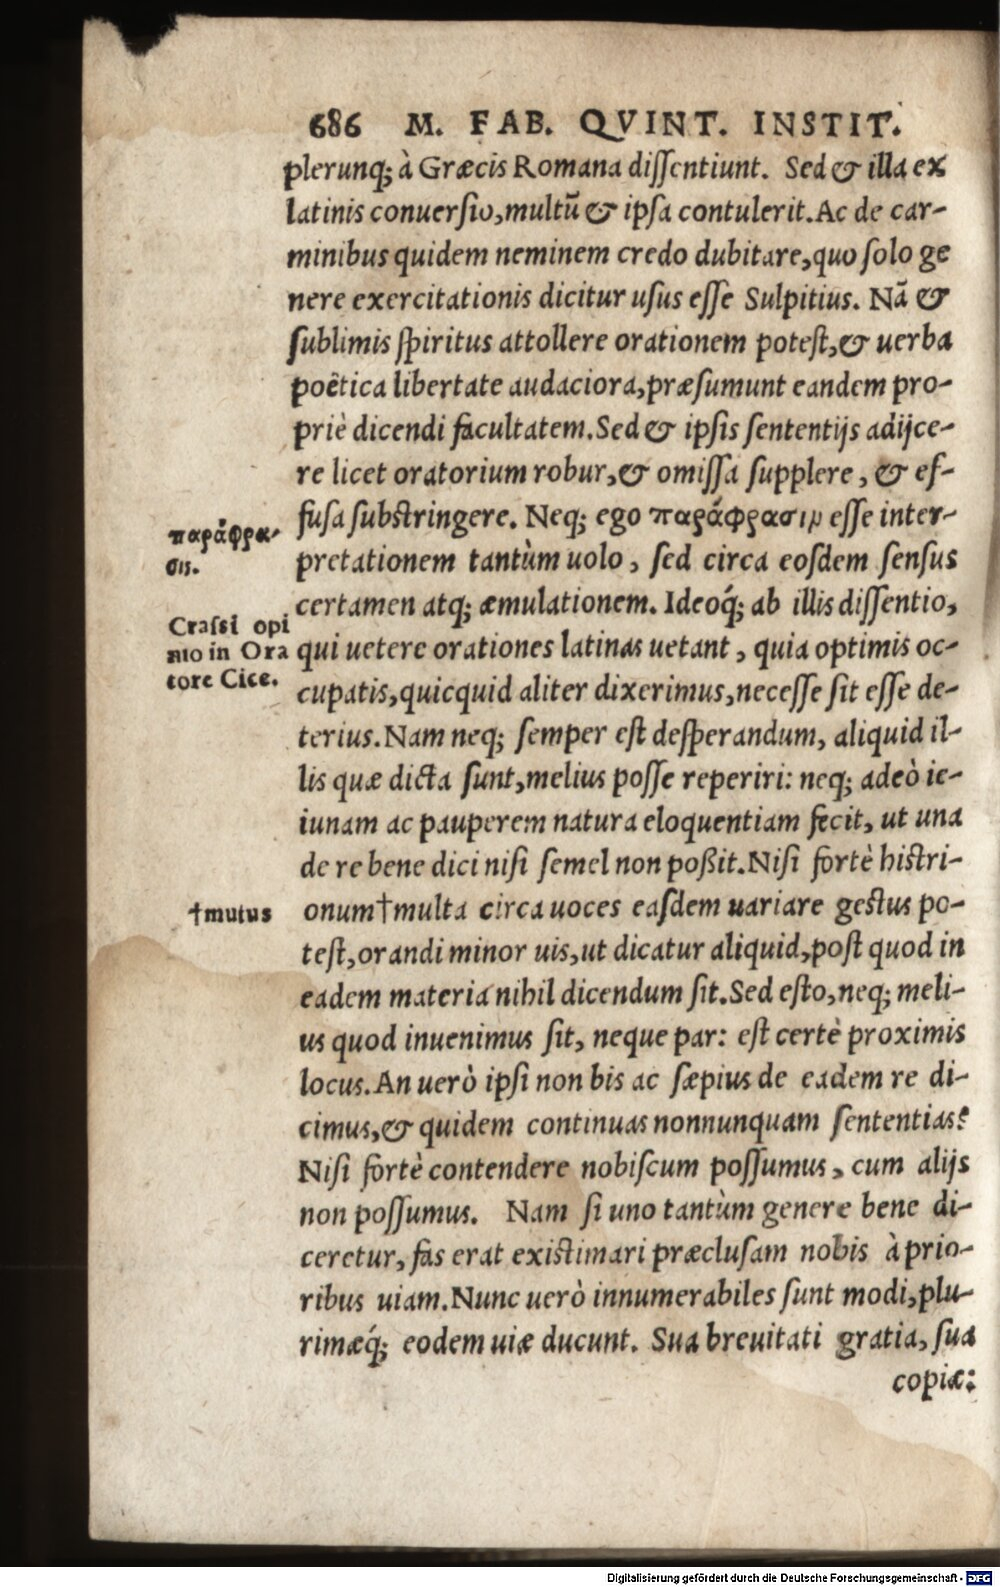 686 M. FAB. QVINT. INSTIT.
plerunq; à Græcis Romana dissentiunt. Sed & illa ex
latinis conuersio, multū & ipsa contulerit. Ac de car-
minibus quidem neminem credo dubitare, quo solo ge
nere exercitationis dicitur usus esse Sulpitius. Nā &
sublimis spiritus attollere orationem potest, & uerba
poëtica libertate audaciora, præsumunt eandem pro-
priè dicendi facultatem. Sed & ipsis sententijs adijce-
re licet oratorium robur, & omissa supplere, & ef-
fusa substringere. Neq; ego παράφρασιν esse inter-
pretationem tantùm uolo, sed circa eosdem sensus
certamen atq; æmulationem. Ideoq́; ab illis dissentio,
qui uetere orationes latinas uetant, quia optimis oc-
cupatis, quicquid aliter dixerimus, necesse sit esse de-
terius. Nam neq; semper est desperandum, aliquid il-
lis quæ dicta sunt, melius posse reperiri: neq; adeò ie-
iunam ac pauperem natura eloquentiam fecit, ut una
de re bene dici nisi semel non poßit. Nisi fortè histri-
onum†multa circa uoces easdem uariare gestus po-
test, orandi minor uis, ut dicatur aliquid, post quod in
eadem materia nihil dicendum sit. Sed esto, neq; meli-
us quod inuenimus sit, neque par: est certè proximis
locus. An uerò ipsi non bis ac sæpius de eadem re di-
cimus, & quidem continuas nonnunquam sententias?
Nisi fortè contendere nobiscum possumus, cum alijs
non possumus. Nam si uno tantùm genere bene di-
ceretur, fas erat existimari præclusam nobis à prio-
ribus uiam. Nunc uerò innumerabiles sunt modi, plu-
rimæq́; eodem uiæ ducunt. Sua breuitati gratia, sua
copiæ:
παράφρα-
σις.
Crassi opi
nio in Ora
tore Cice.
†mutus
Digitalisierung gefördert durch die Deutsche Forschungsgemeinschaft - DFG